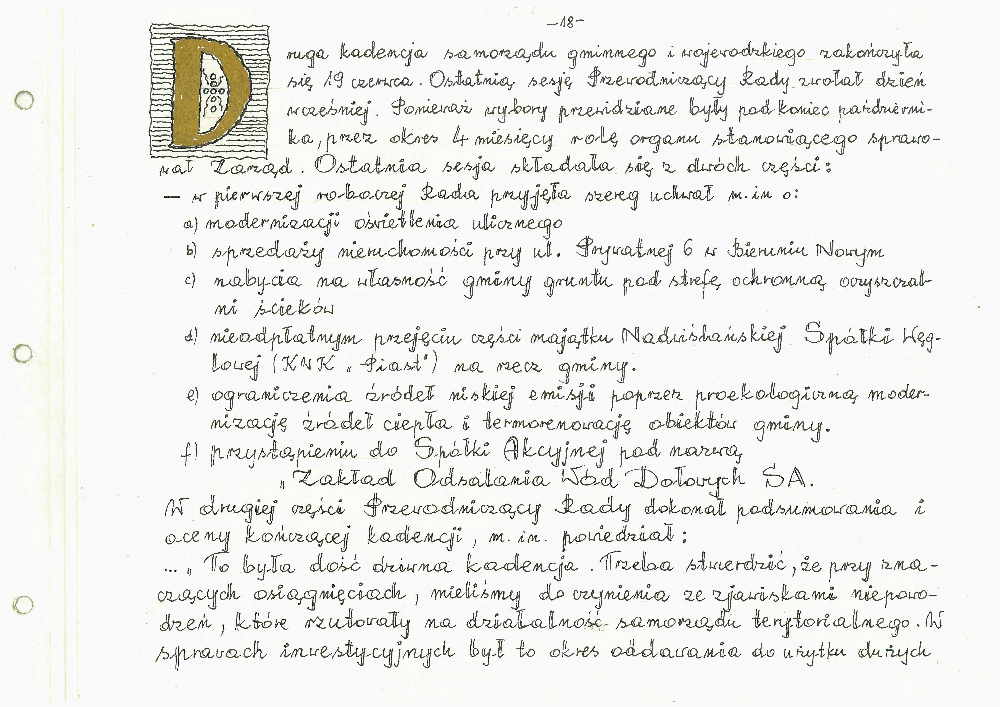 -18-
Druga kadencja samorządu gminnego i wojewódzkiego zakończyła
się 19 czerwca. Ostatnią sesję Przewodniczący Rady zwołał dzień
wcześniej. Ponieważ wybory przewidziane były pod koniec październi-
ka, przez okres 4 miesięcy rolę organu stanowiącego sprawo-
wał Zarząd. Ostatnia sesja składała się z dwóch części:
— w pierwszej roboczej Rada przyjęła szereg uchwał m.in o:
a) modernizacji oświetlenia ulicznego
b) sprzedaży nieruchomości przy ul. Prywatnej 6 w Bieruniu Nowym
c) nabycia na własność gminy gruntu pod strefę ochronną oczyszczal-
ni ścieków
d) nieodpłatnym przejęciu części majątku Nadwiślańskiej Spółki Węg-
lowej (KWK „Piast") na rzecz gminy.
e) ograniczenia źródeł niskiej emisji poprzez proekologiczną moder-
nizację źródeł ciepła i termorenowację obiektów gminy.
f) przystąpieniu do Spółki Akcyjnej pod nazwą
„Zakład Odsalania Wód Dołowych SA.
W drugiej części Przewodniczący Rady dokonał podsumowania i
oceny kończącej kadencji, m.in. powiedział:
... „To była dość dziwna kadencja. Trzeba stwierdzić, że przy zna-
czących osiągnięciach, mieliśmy do czynienia ze zjawiskami niepowo-
dzeń, które rzutowały na działalność samorządu terytorialnego. W
sprawach inwestycyjnych był to okres oddawania do użytku dużych